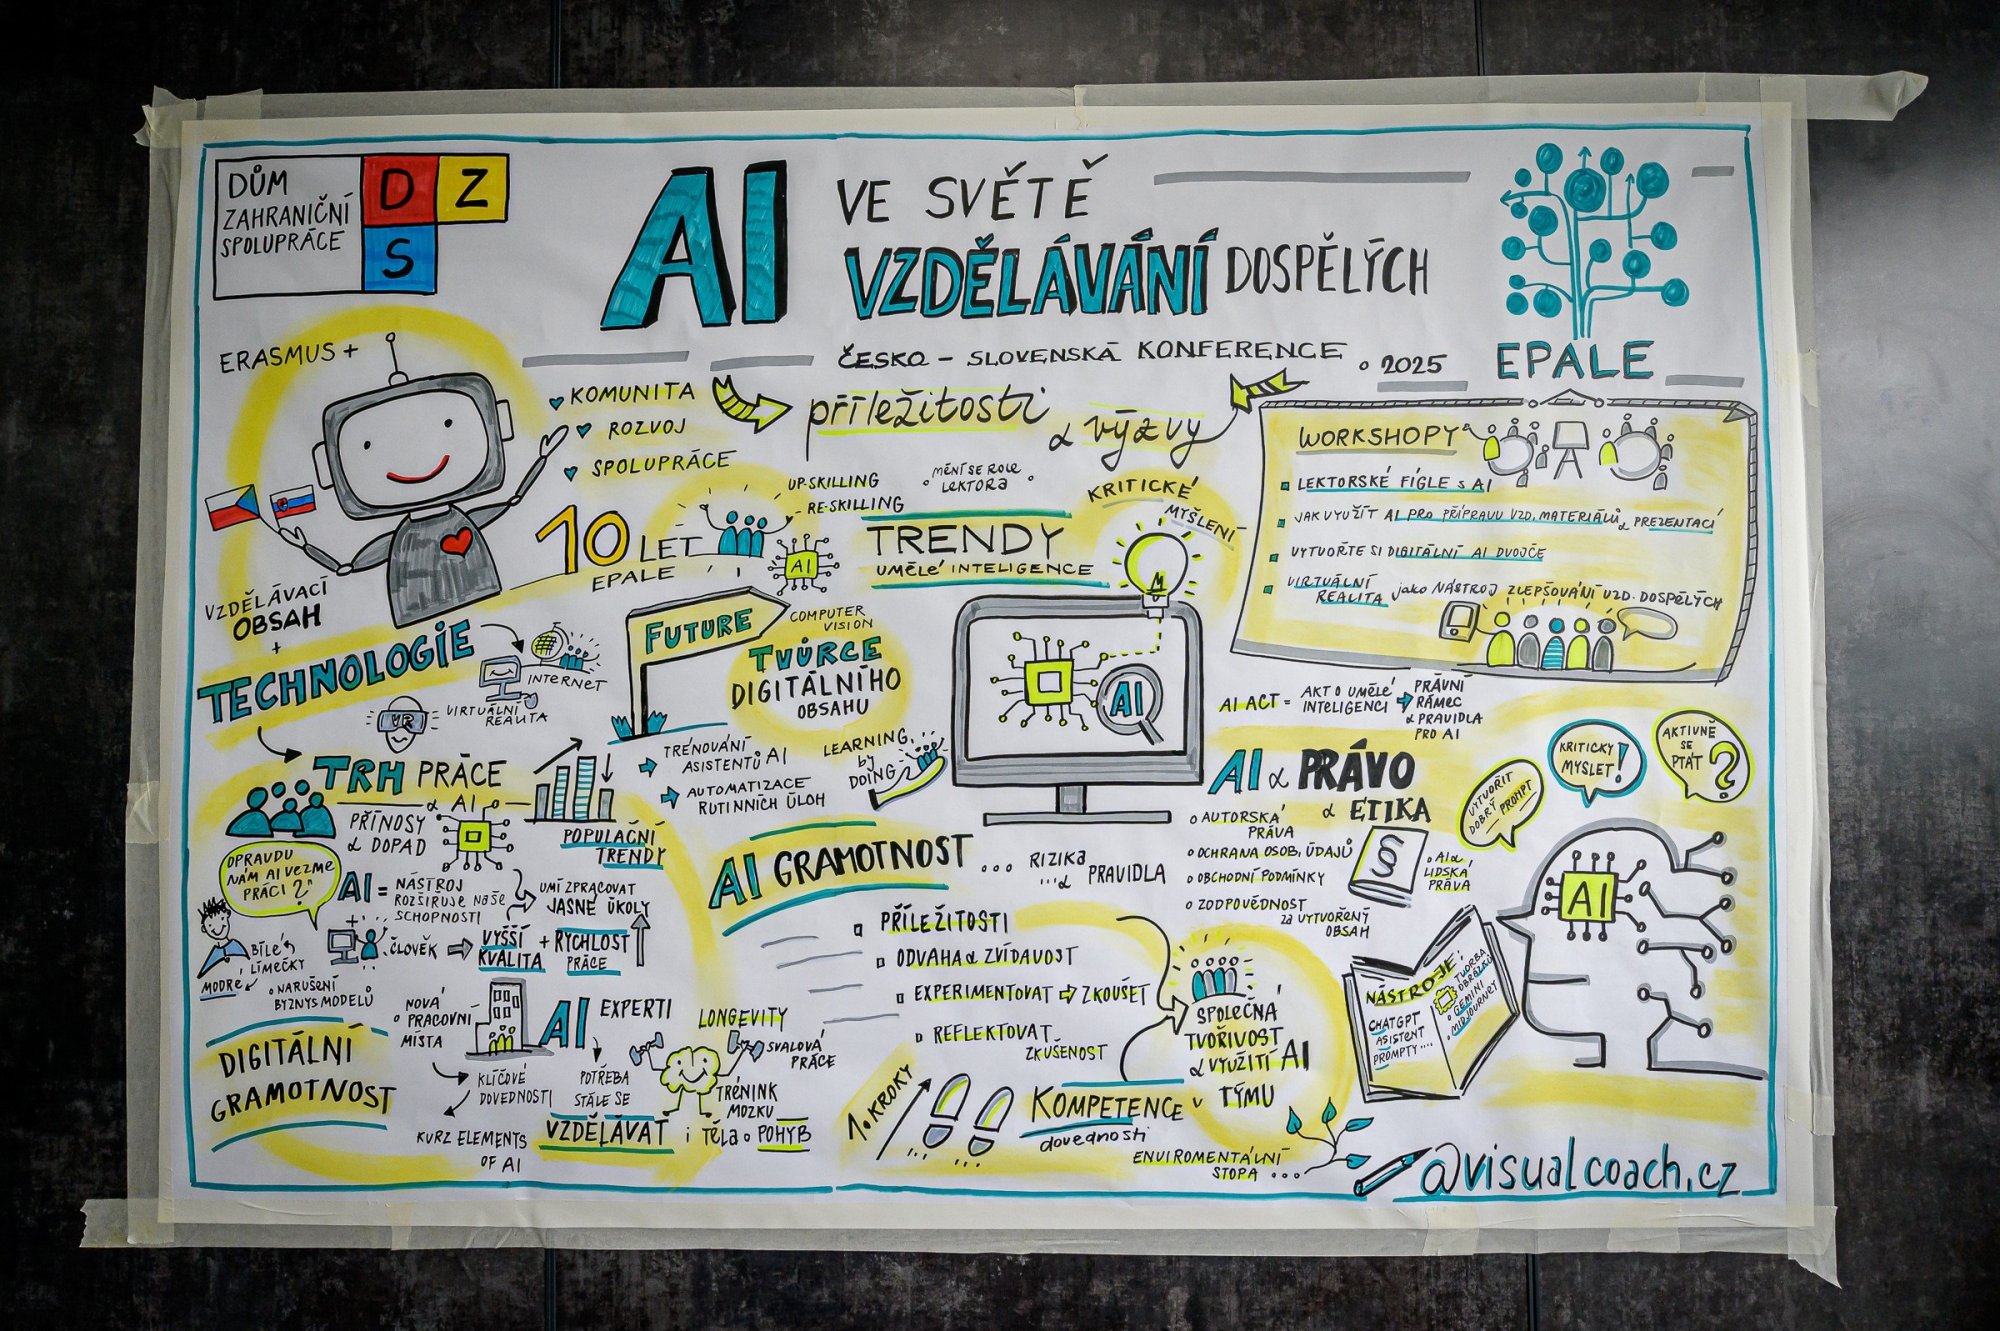 DŮM
ZAHRANIČNÍ
SPOLUPRÁCE
D Z
S
AI VE SVĚTĚ
VZDĚLÁVÁNÍ DOSPĚLÝCH
ČESKO - SLOVENSKÁ KONFERENCE • 2025
EPALE
příležitosti
& výzvy
ERASMUS +
KOMUNITA
ROZVOJ
SPOLUPRÁCE
10 LET
EPALE
UP-SKILLING
- RE-SKILLING
AI
MĚNÍ SE ROLE
LEKTORA
TRENDY
UMĚLÉ INTELIGENCE
KRITICKÉ
MYŠLENÍ
WORKSHOPY
LEKTORSKÉ FÍGLE s AI
JAK VYUŽÍT AI PRO PŘÍPRAVU VZD. MATERIÁLŮ & PREZENTACÍ
VYTVOŘTE SI DIGITÁLNÍ AI DVOJČE
VIRTUÁLNÍ
REALITA jako NÁSTROJ ZLEPŠOVÁNÍ VZD. DOSPĚLÝCH
VZDĚLÁVACÍ
OBSAH
+
TECHNOLOGIE
INTERNET
VIRTUÁLNÍ
REALITA
VR
FUTURE
COMPUTER
VISION
TVŮRCE
DIGITÁLNÍHO
OBSAHU
TRÉNOVÁNÍ
ASISTENTŮ AI
AUTOMATIZACE
RUTINNÍCH ÚLOH
LEARNING
by
DOING
AI
AI ACT = AKT O UMĚLÉ
INTELIGENCI
PRÁVNÍ
RÁMEC
& PRAVIDLA
PRO AI
AI & PRÁVO
& ETIKA
AUTORSKÁ
PRÁVA
OCHRANA OSOB. ÚDAJŮ
OBCHODNÍ PODMÍNKY
ZODPOVĚDNOST
ZA VYTVOŘENÝ
OBSAH
§
AI &
LIDSKÁ
PRÁVA
VYTVOŘIT
DOBRÝ PROMPT
KRITICKY
MYSLET!
AKTIVNĚ
SE
PTÁT
?
AI
NÁSTROJE:
CHATGPT
ASISTENT
PROMPTY....
TVORBA
OBRÁZKŮ
GEMINI
MIDJOURNEY
TRH PRÁCE
& AI
PŘÍNOSY
& DOPAD
POPULAČNÍ
TRENDY
OPRAVDU
NÁM AI VEZME
PRÁCI?"
AI = NÁSTROJ
ROZŠIRUJE NAŠE
SCHOPNOSTI
UMÍ ZPRACOVAT
JASNÉ ÚKOLY
+
ČLOVĚK
VYŠŠÍ
KVALITA
+ RYCHLOST
PRÁCE
BÍLÉ
LÍMEČKY
MODRÉ
NARUŠENÍ
BYZNYS MODELŮ
NOVÁ
PRACOVNÍ
MÍSTA
AI EXPERTI
LONGEVITY
SVALOVÁ
PRÁCE
DIGITÁLNÍ
GRAMOTNOST
KLÍČOVÉ
DOVEDNOSTI
KURZ ELEMENTS
OF AI
POTŘEBA
STÁLE SE
VZDĚLÁVAT
TRÉNINK
MOZKU
i TĚLA • POHYB
AI GRAMOTNOST ... RIZIKA
...& PRAVIDLA
PŘÍLEŽITOSTI
ODVAHA & ZVÍDAVOST
EXPERIMENTOVAT ZKOUŠET
REFLEKTOVAT
ZKUŠENOST
1. KROKY
KOMPETENCE V
dovednosti
SPOLEČNÁ
TVOŘIVOST
& VYUŽITÍ AI
TÝMU
ENVIROMENTÁLNÍ
STOPA ...
@visualcoach.cz